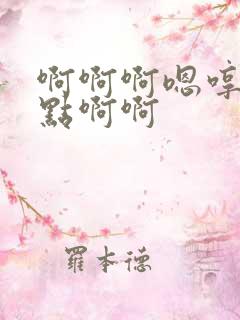 啊啊啊嗯哼
點啊啊
羅本德